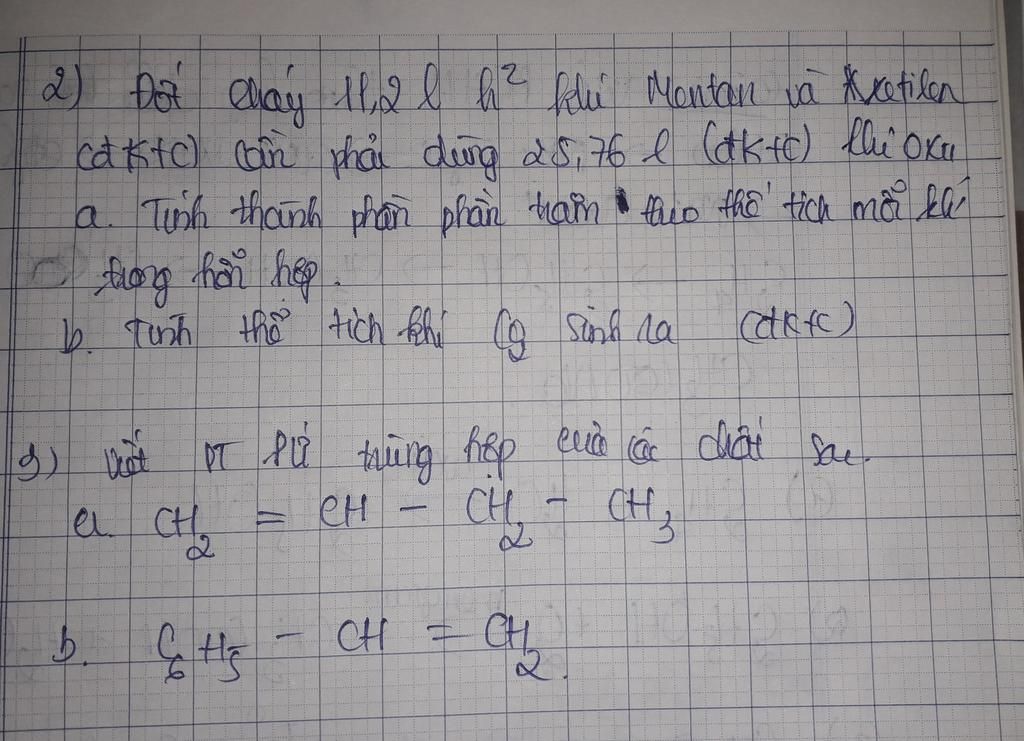 2) Đốt cháy 11,2 l h² khí Mentan và Axetilen
(đktc) cần phải dùng 25,76 l (đktc) khí oxi
a. Tính thành phần phần trăm theo thể tích mỗi khí
trong hỗn hợp.
b. Tính thể tích khí Cg sinh ra (đktc)
3) Viết PT PƯ trùng hợp của các chất sau.
a. CH₂ = CH - CH₂ - CH₃
b. C₆H₅ - CH = CH₂.